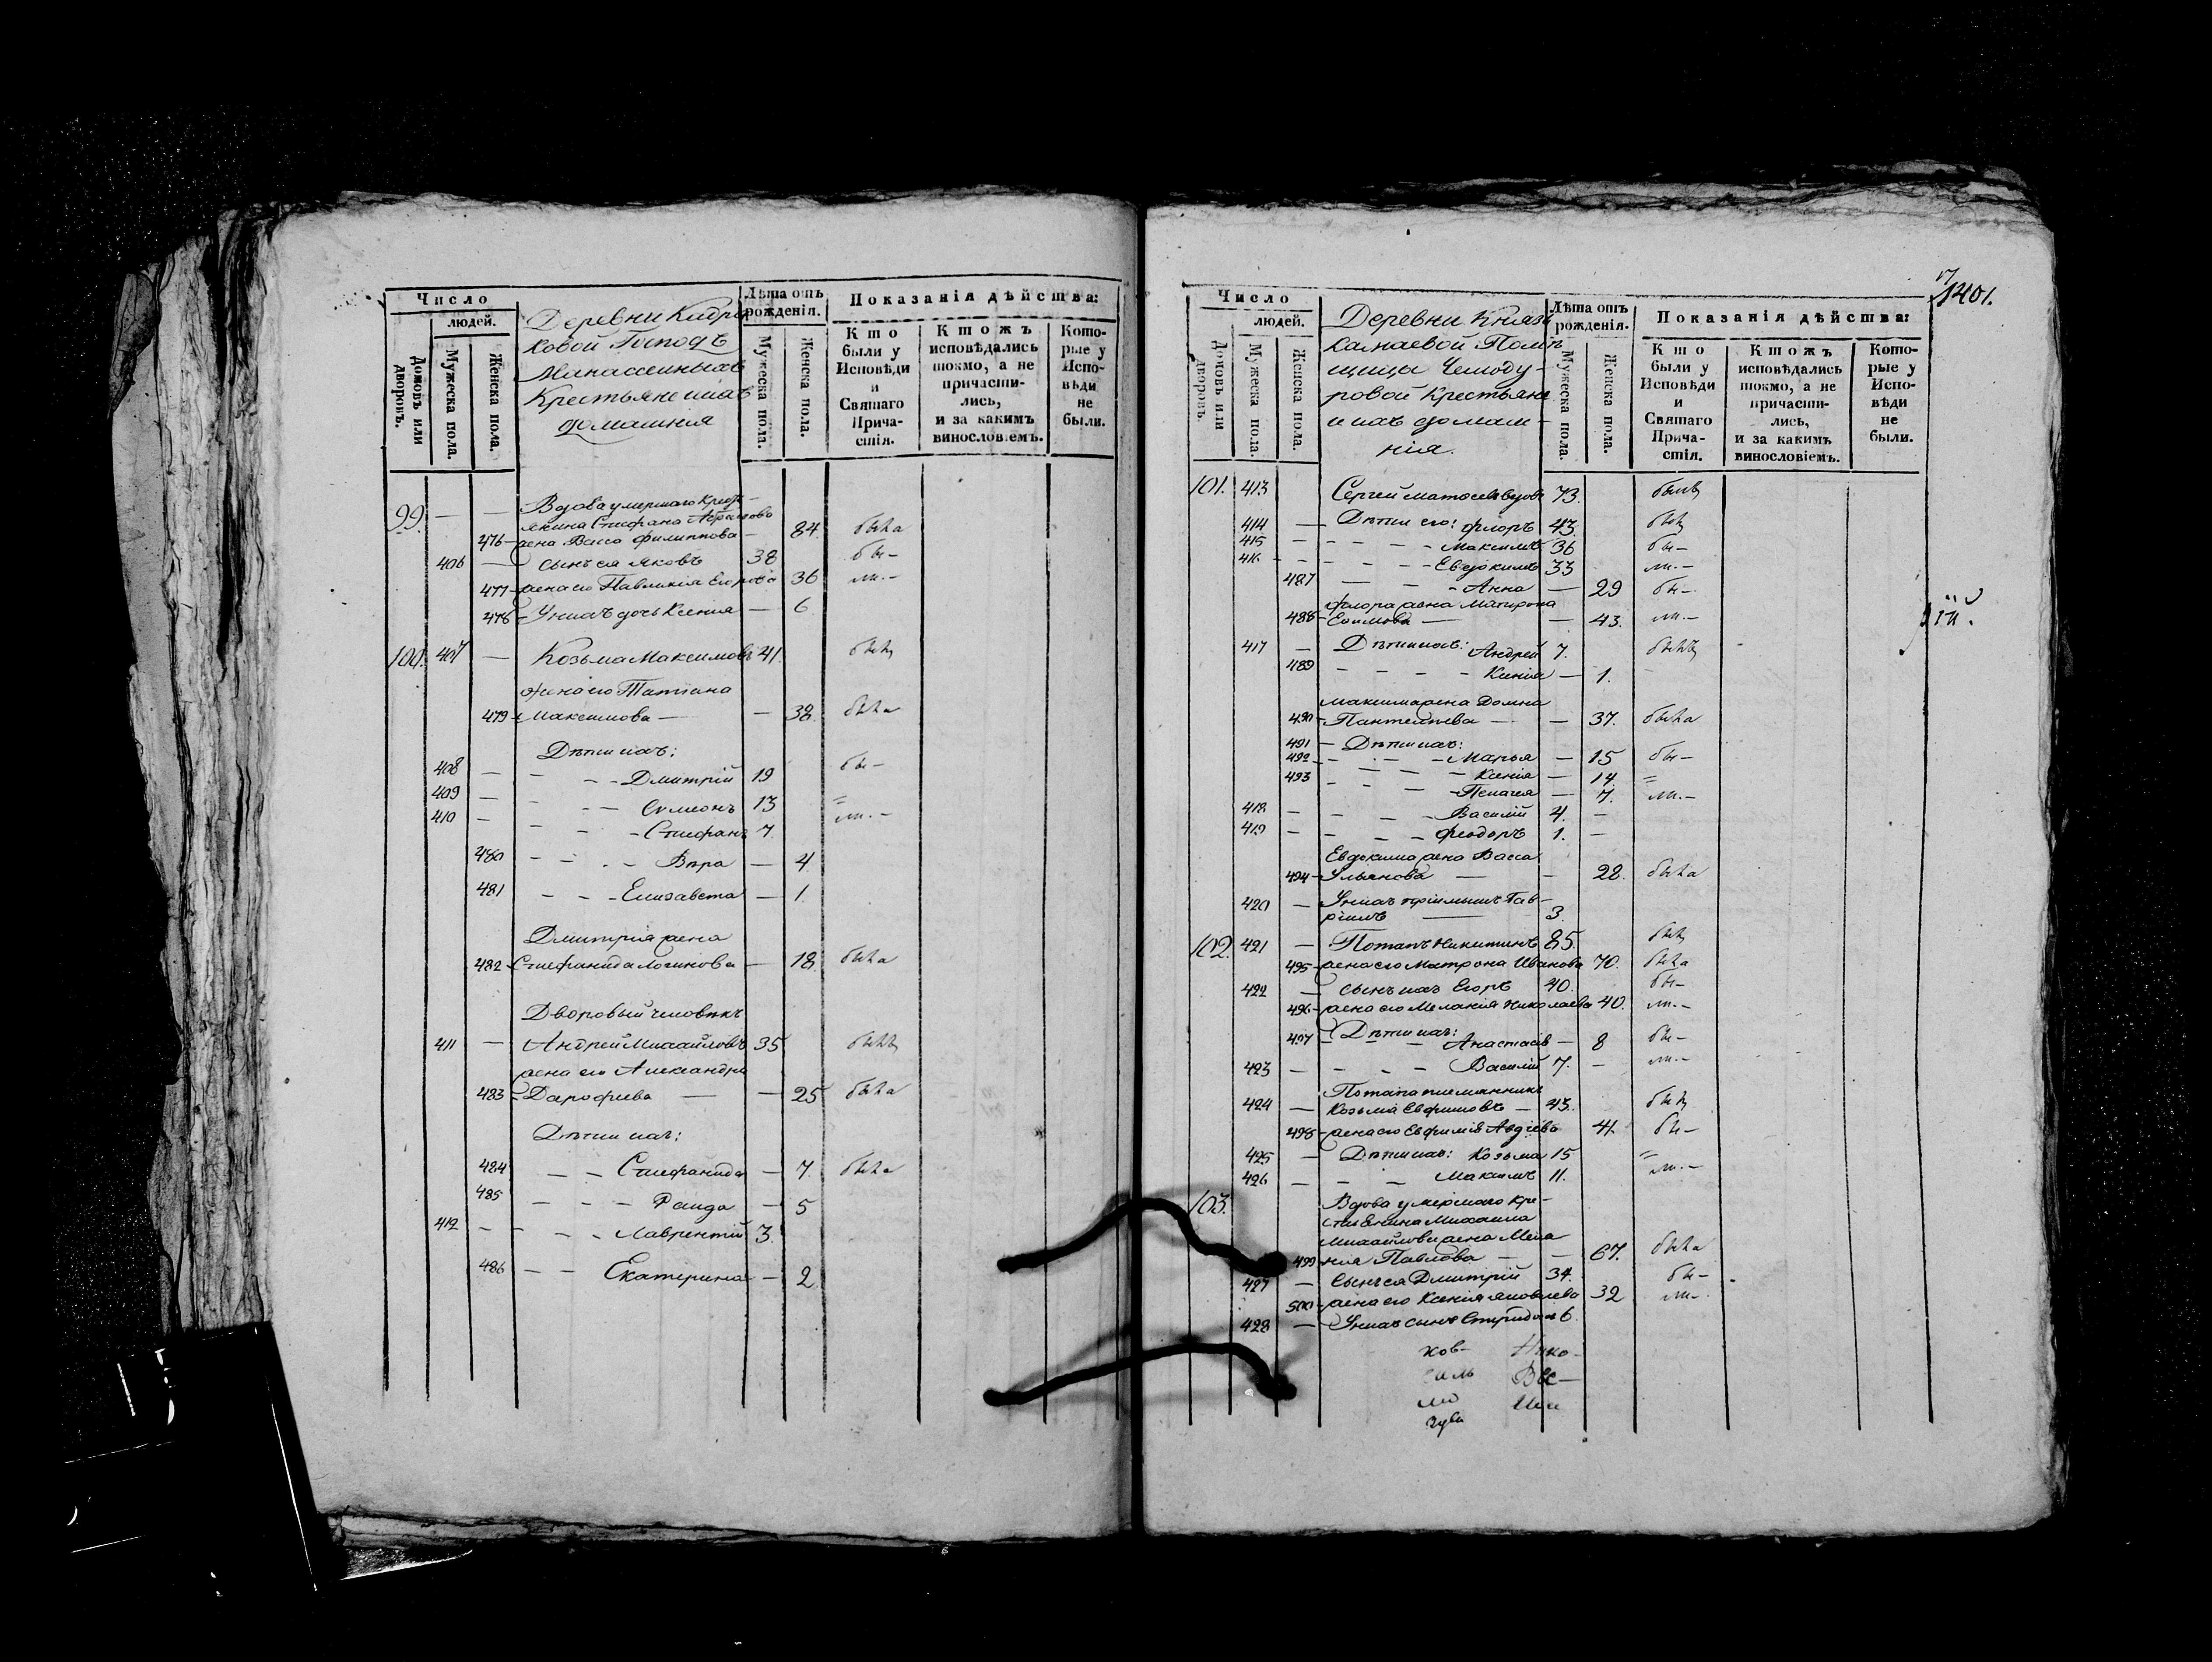 Число
людей.
Домовъ или дворовъ.
Мужеска пола.
Женска пола.
Деревни Кидри
ковой Господъ
Манассеиныхъ
Крестьяне и ихъ
домашнія
Лѣта отъ рожденія.
Мужеска пола.
Женска пола.
Показанія дѣйства:
Кто были у Исповѣди и Святаго Причастія.
Ктожъ исповѣдались токмо, а не причастились, и за какимъ винословіемъ.
Которые у Исповѣди не были.
99. — — Вдова умершаго Крест-
янина Стефана
476 жена Васса Филиппова — 84 была
406 — сынъ ея Яковъ 38 бы-
477 жена его Павлинія Егорова 36 ли.-
478 У нихъ дочь Ксенія — 6
100. 407 — Козьма Максимовъ 41. былъ
жена его Татіана
479 Максимова — — 38. была
Дѣти ихъ:
408 — — — Дмитрій 19 бы-
409 — — — Симеонъ 13 =
410 — — — Стефанъ 7. ли.-
480 — — — Вѣра — 4
481 — — Елизавета — 1.
Дмитрія жена
482 Стефанида Логинова — 18 была
Дворовый человѣкъ
411 — Андрей Михайловъ 35 былъ
жена его Александра
483 Дарофеева — — 25 была
Дѣти ихъ:
484 — — Стефанида — 7. была
485 — — — Раида — 5
412 — — — Лаврентій 3.
486 — — Екатерина — 2
1401.
Число
людей.
Домовъ или дворовъ.
Мужеска пола.
Женска пола.
Деревни Князь
Камаевой Помѣ
щицы Чемоду-
ровой Крестьяне
и ихъ домаш-
нія.
Лѣта отъ рожденія.
Мужеска пола.
Женска пола.
Показанія дѣйства:
Кто были у Исповѣди и Святаго Причастія.
Ктожъ исповѣдались токмо, а не причастились, и за какимъ винословіемъ.
Которые у Исповѣди не были.
101. 413 Сергей Матвеевъ вдовъ 73. былъ
414 — Дѣти его: Флоръ 43. былъ
415 — — — — Максимъ 36 бы-
416 — — — — Евдокимъ 33 ли.-
487 — — — Анна — 29 бы-
Флора жена Матрона
488 Ефимова — — 43. ли.-
417 — Дѣти ихъ: Андрей 7. былъ
489 — — — Ксенія — 1.
Максима жена Домна
490 Пантелеева — — 37. была
491 — Дѣти ихъ:
492 — — — Марья — 15 бы-
493 — — — Ксенія — 14 =
— — Пелагея — 7. ли.-
418 — — — — Василій 4. —
419 — — — — Феодоръ 1. —
Евдокима жена Васса
494 Ульянова — — 28. была
420 — У нихъ пріимышъ Гав-
ріилъ — 3.
102. 421 — Потапъ Никитинъ 85. былъ
495 жена его Матрона Иванова 70. была
422 — сынъ ихъ Егоръ 40. бы-
496 жена его Меланія Николаева 40. ли.-
497 — Дѣти ихъ:
— — Анастасія — 8 бы-
423 — — — — Василій 7. — ли.-
Потапа племянникъ
424 — Козьма Евфимовъ — 43. былъ
498 жена его Евфимія Авдѣева 41. бы-
425 — Дѣти ихъ: Козьма 15 =
426 — — — Максимъ 11. ли.-
103. Вдова умершаго кре-
стьянина Михаила
Михайлова жена Мела
499 нія Павлова — — 67. была
427 — Сынъ ея Дмитрій 34. бы-
500 жена его Ксенія Яковлева 32 ли-
428 — У нихъ сынъ Спиридонъ 6.
ков- Нико-